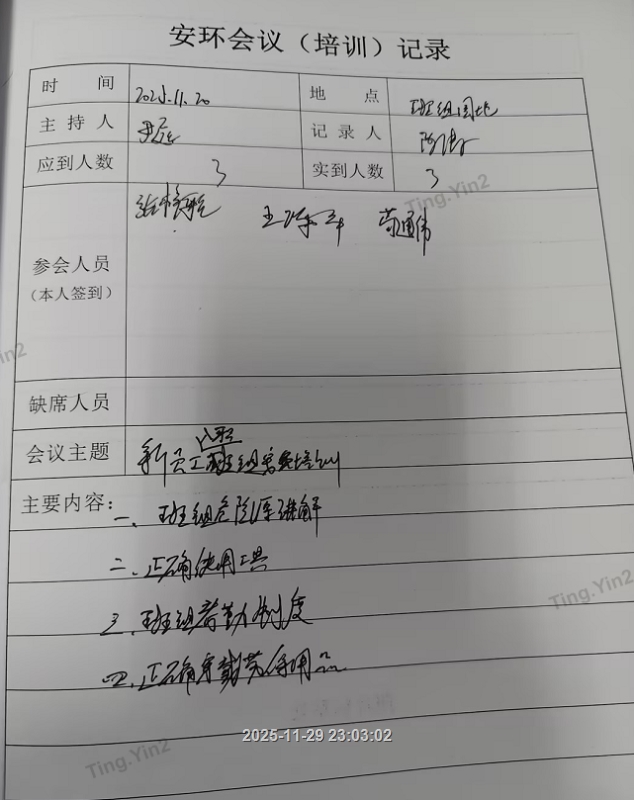 安环会议（培训）记录
时 间 2025.11.20 地 点 班组园地
主 持 人 记 录 人
应到人数 3 实到人数 3
参会人员 王
（本人签到）
缺席人员
会议主题 新员工入职班组安全培训
主要内容：一、班组危险源讲解
二、正确使用工具
三、班组考勤制度
四、正确穿戴劳保用品
Ting.Yin2
Ting.Yin2
Ting.Yin2
2025-11-29 23:03:02